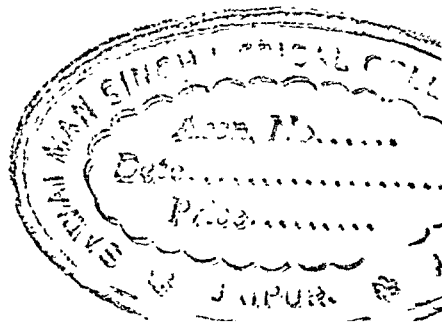 SAWAI MAN SINGH MEDICAL COLL
Accn. No.......
Date....................
Price............
JAIPUR.